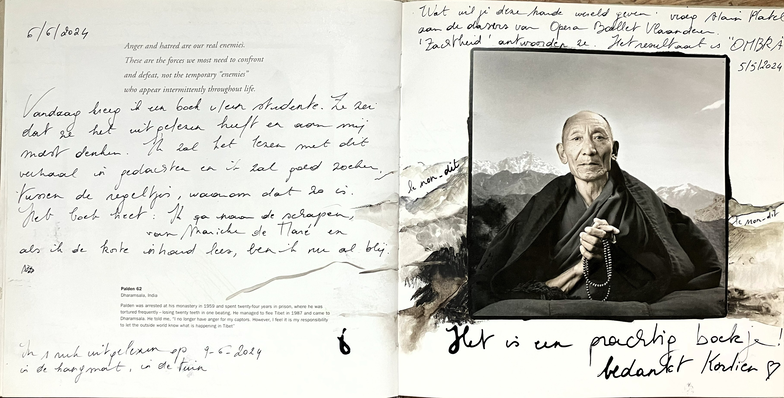 6/6/2024
Anger and hatred are our real enemies.
These are the forces we most need to confront
and defeat, not the temporary "enemies"
who appear intermittently throughout life.
Vandaag kreeg ik een boek v/een studente. Ze zei
dat ze het uitgelezen heeft en aan mij
moest denken. Ik zal het lezen met dit
verhaal in gedachten en ik zal goed zoeken,
tussen de regeltjes, waarom dat zo is.
Het boek heet: Ik ga naar de schapen,
van Marieke de Maré en
als ik de korte inhoud lees, ben ik nu al blij.
Palden 62
Dharamsala, India
Palden was arrested at his monastery in 1959 and spent twenty-four years in prison, where he was
tortured frequently – losing twenty teeth in one beating. He managed to flee Tibet in 1987 and came to
Dharamsala. He told me, "I no longer have anger for my captors. However, I feel it is my responsibility
to let the outside world know what is happening in Tibet"
uitgelezen op 9-6-2024
in de hangmat, in de tuin
Wat wil je deze hande wereld geven. vroeg Alain Platel
aan de dansers van Opera Ballet Vlaanderen.
'Zachtheid' antwoorden ze. Het resultaat is "OMBRA
5/5/2024
le non-dit
le non-dit
Het is een prachtig boekje!
bedankt